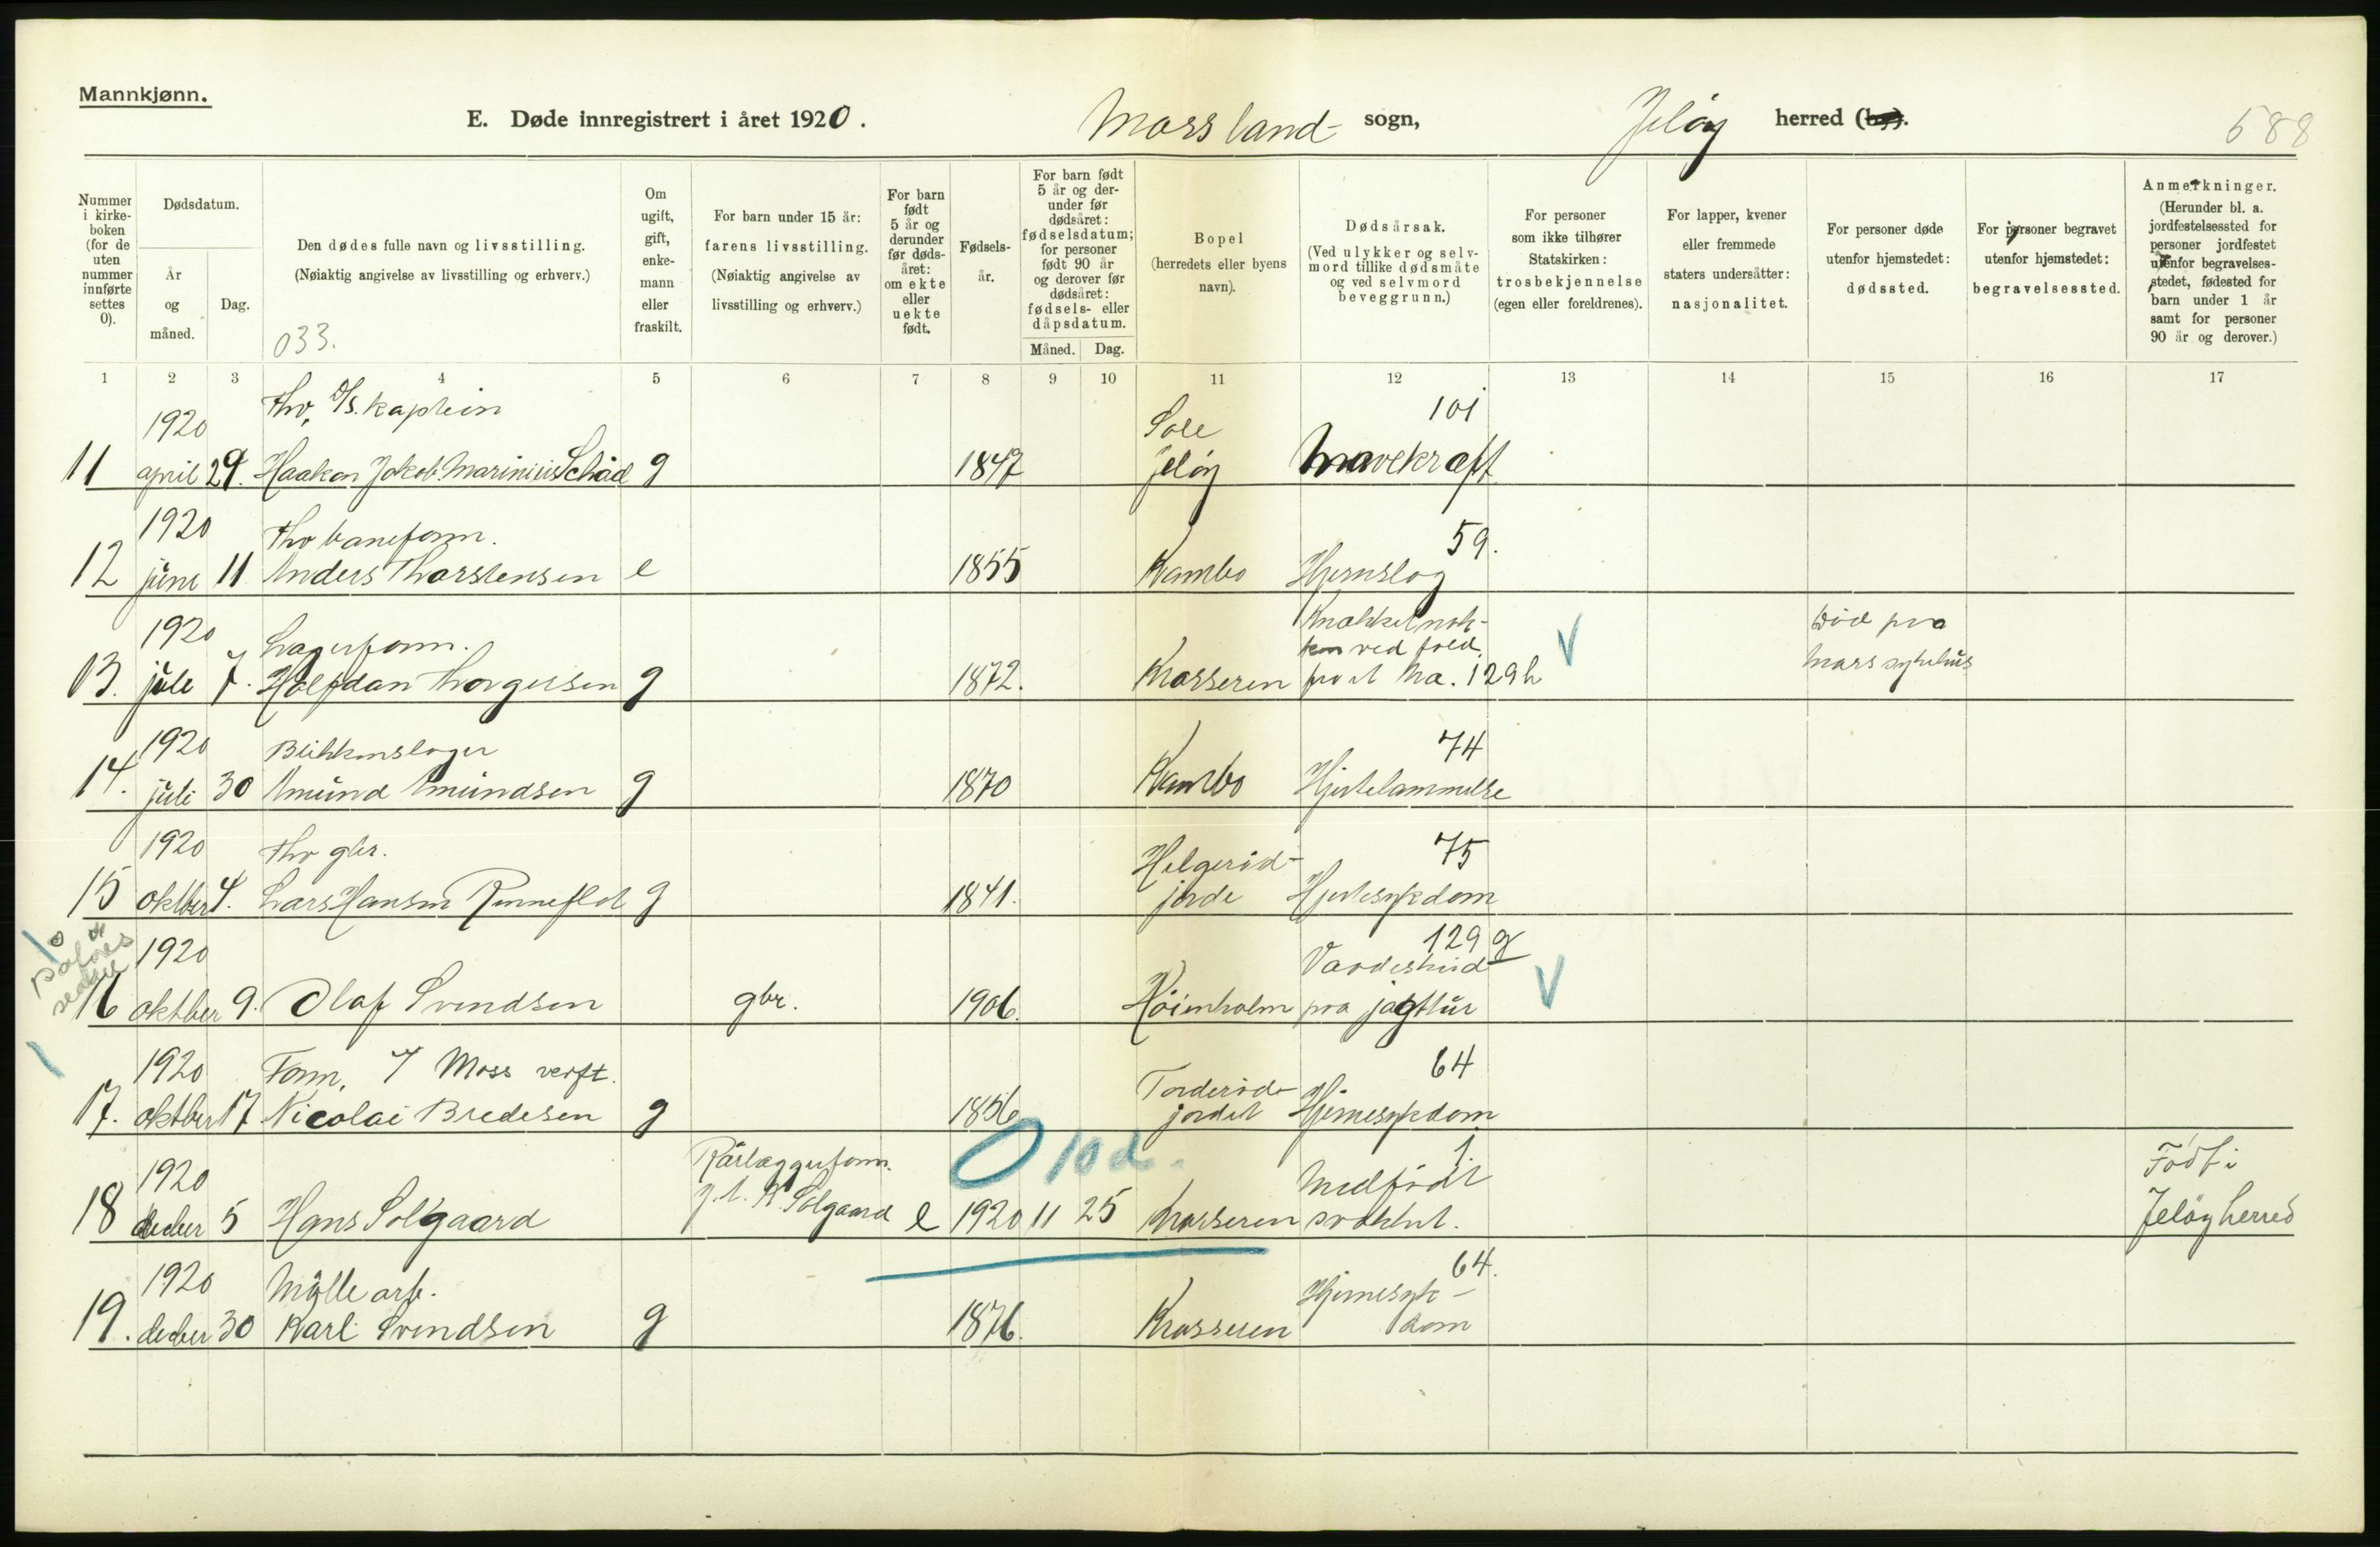 Mannkjønn.
E. Døde innregistrert i året 1920. Moss land- sogn, Jeløy herred (by).
588
Nummer i kirke-boken (for de uten nummer innførte settes 0).
Dødsdatum.
År og måned.
Dag.
Den dødes fulle navn og livsstilling.
(Nøiaktig angivelse av livsstilling og erhverv.)
033.
Om ugift, gift, enke-mann eller fraskilt.
For barn under 15 år: farens livsstilling.
(Nøiaktig angivelse av livsstilling og erhverv.)
For barn født 5 år og derunder før døds-året: om ekte eller uekte født.
Fødsels-år.
For barn født 5 år og der-under før dødsåret: fødselsdatum; for personer født 90 år og derover før dødsåret: fødsels- eller dåpsdatum.
Måned. Dag.
Bopel
(herredets eller byens navn).
Dødsårsak.
(Ved ulykker og selv-mord tillike dødsmåte og ved selvmord beveggrunn.)
For personer som ikke tilhører Statskirken: trosbekjennelse (egen eller foreldrenes).
For lapper, kvener eller fremmede staters undersåtter: nasjonalitet.
For personer døde utenfor hjemstedet: dødssted.
For personer begravet utenfor hjemstedet: begravelsessted.
Anmerkninger.
(Herunder bl. a. jordfestelsessted for personer jordfestet utenfor begravelses-stedet, fødested for barn under 1 år samt for personer 90 år og derover.)
1 2 3 4 5 6 7 8 9 10 11 12 13 14 15 16 17
1920 fhv. D/S. kaptein Sole 101
11 april 29. Haakon Jakob Marinius Schad g 1847 Jeløy Mavekræft
1920 fhv baneform. 59.
12 juni 11 Anders Thorstensen e 1855 Kambo Hjerneslag
1920 Lagerform. Knækket nak- død paa
ken ved fald Moss sykehus
13. juli 7. Halfdan Thorgersen g 1872. Krosseren fra et 129h V
1920 Blikkenslager 74
14. juli 30 Amund Amundsen g 1870 Kambo Hjertelammelse
1920 fhv gbr. Helgerød- 75
15 oktber 4. Lars Hansen g 1841. jorde Hjertesykdom
1920 129 g
Vaadeskud
16 oktber 9. Olaf Svendsen gbr. 1906. paa jagttur V
1920 Form. Moss verft. Torderød- 64
17. oktber 17. Nicolai Bredesen g 1856 jordet Hjernesykdom
0 10 d.
1920 Rørlæggerform. 1. Medfødt Født i
18 decber 5 Hans Solgaard Solgaard e 1920 11 25 Krosseren svakhet. Jeløy herred
1920 Mølle arb. Hjernesyk- 64.
19. decber 30 Karl Svendsen g 1876. Krosseren dom